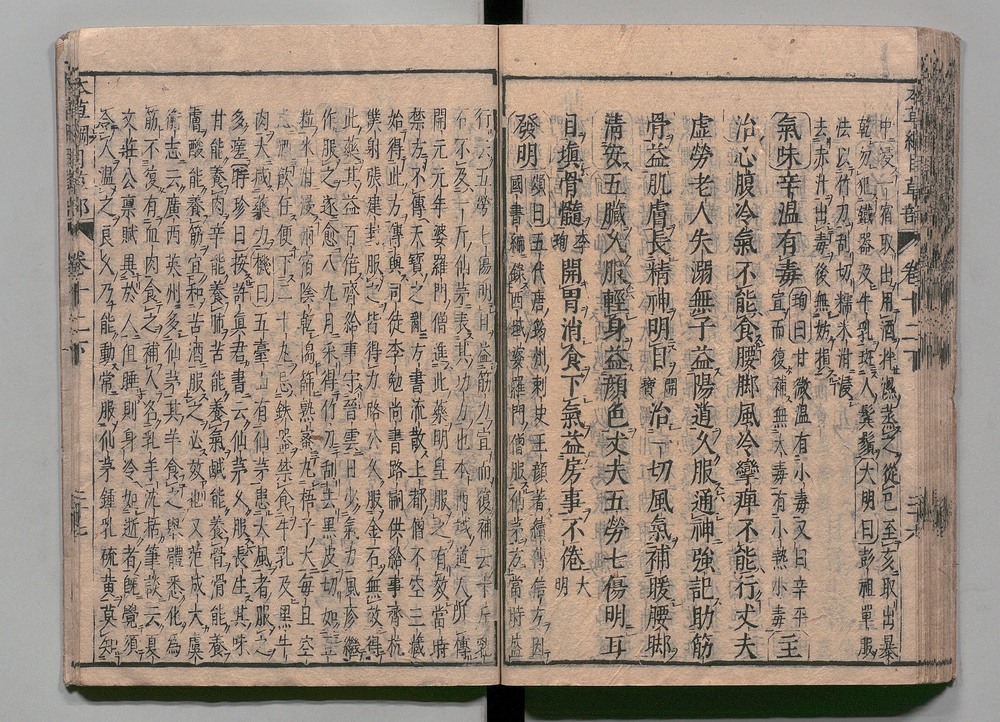 中浸一宿取出用酒拌濕蒸之從巳至亥取出暴
乾勿犯鐵器及牛乳斑人鬢鬚大明曰彭祖單服
法以竹刀刮切糯米泔浸
去赤汁出毒後無妨損
氣味辛溫有毒珣曰甘微溫有小毒又曰辛平宣而復補無大毒有小熱小毒主
治心腹冷氣不能食腰脚風冷攣痺不能行丈夫
虛勞老人失溺無子益陽道久服通神強記助筋
骨益肌膚長精神明目開寶治一切風氣補暖腰脚
清安五臟久服輕身益顏色丈夫五勞七傷明耳
目塡骨髓李珣開胃消食下氣益房事不倦大明
發明頌曰五代唐筠州刺史王顏著續傳信方因國書編錄西域婆羅門僧服仙茅方當時盛
行云五勞七傷明目益筋力宜而復補云十斤乳
石不及一斤仙茅表其功力也本西域道人所傳
開元元年婆羅門僧進此藥明皇服之有效當時
禁方不傳天寶之亂方書流散上都僧不空三藏
始得此方傳與司徒李勉尚書路嗣供給事齊杭
僕射張建封服之皆得力路公久服金石無效得
此藥其益百倍齊給事守晉雲日少氣力風疹繼
作服之遂愈八九月采得竹刀刮去黑皮切如豆
粒米泔浸兩宿陰乾搗篩熟蜜丸梧子大每旦空
心酒飲任便下二十丸忌鉄器禁食牛乳及黑牛
肉大減藥力機曰五臺山有仙茅患大風者服之
多瘥時珍曰按許眞君書云仙茅久服長生其味
甘能養肉辛能養肺苦能養氣鹹能養骨滑能養
膚酸能養筋宜和苦酒服之必效也又范成大虞
衡志云廣西英州多仙茅其羊食之舉體悉化爲
筋不復有血肉食之補人名乳羊沈括筆談云夏
文莊公禀賦異於人但睡則身冷如逝者旣覺須
令人溫之良久乃能動常服仙茅鍾乳硫黃莫知